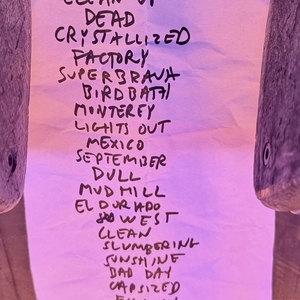 CLEAN UP
DEAD
CRYSTALLIZED
FACTORY
SUPERBRAVA
BIRDBATH
MONTEREY
LIGHTS OUT
MEXICO
SEPTEMBER
DULL
MUD HILL
EL DORADO
WEST
CLEAN
SLUMBERING
SUNSHINE
BAD DAY
CAPSIZED